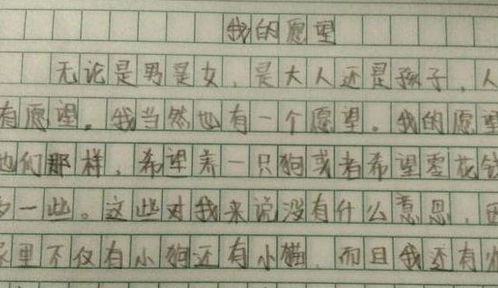 我的愿望
无论是男是女，是大人还是孩子，人
有愿望。我当然也有一个愿望。我的愿望
他们那样，希望养一只狗或者希望零花钱
多一些。这些对我来说没有什么意思，因
家里不仅有小狗还有小猫，而且我还有